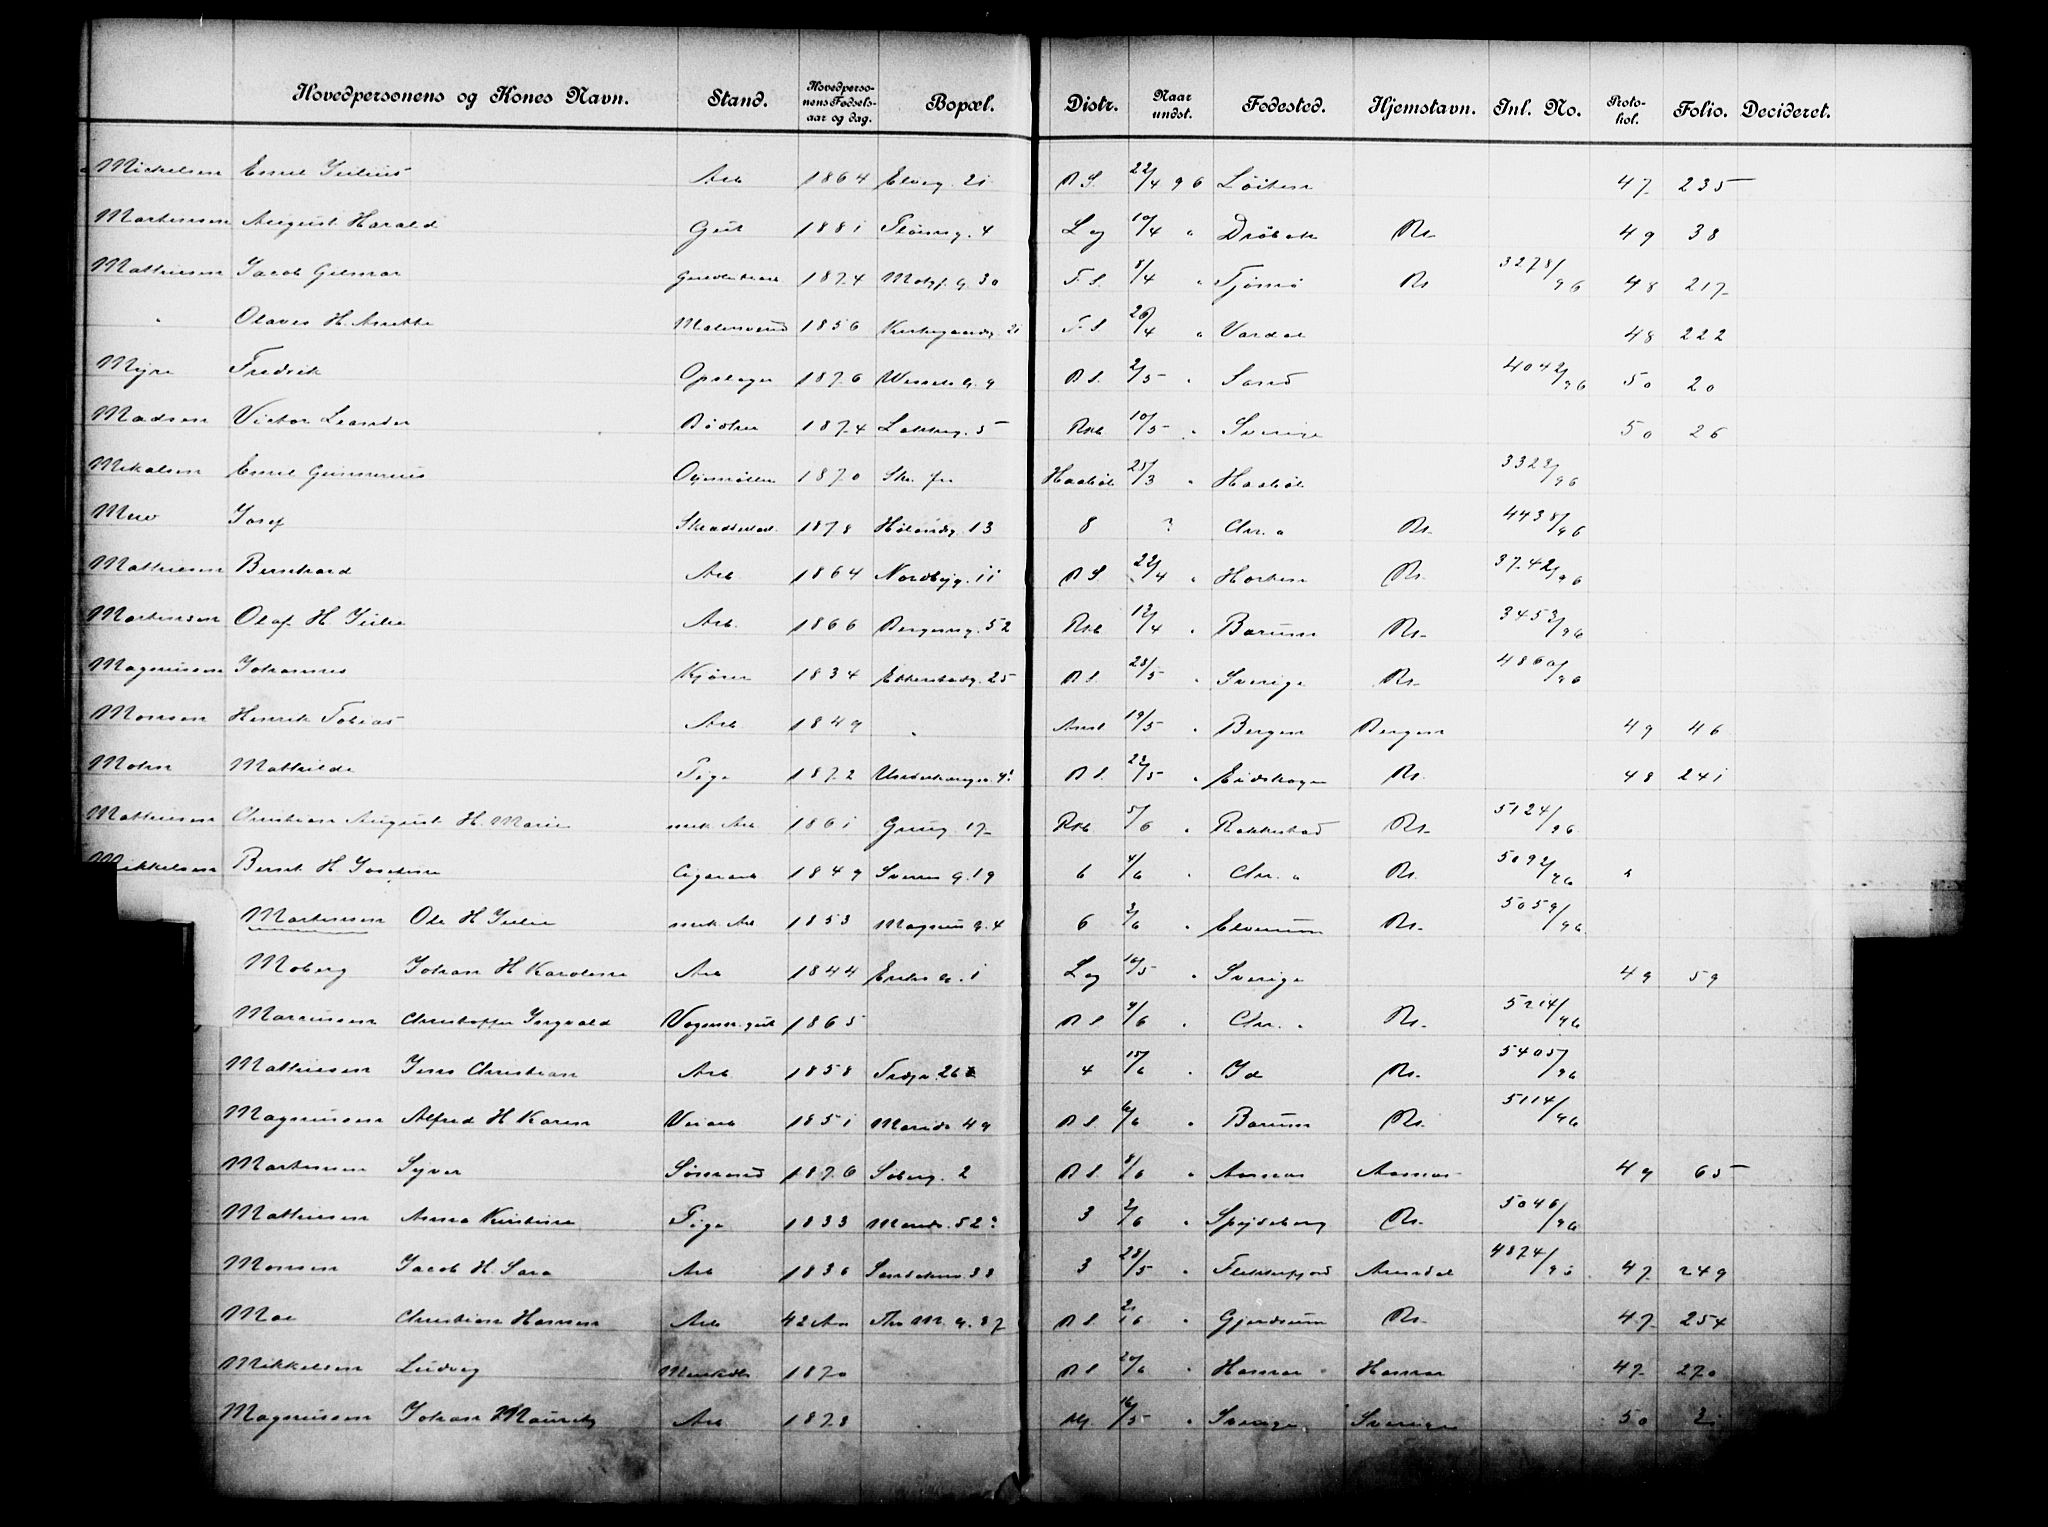 Hovedpersonens og Kones Navn. Stand. Hovedperso-nens Fødsels-aar og dag. Bopæl. Distr. Naar undst. Fødested. Hjemstavn. Inl. No. Proto-kol. Folio. Decideret.
Mickelsen Emil Julius Arb 1864 Elveg. 21 B S. 22/4 96 Löiten 47 235
Martinsen August Harald Gut 1881 4 Lag 10/4 " Dröbak Kr. 49 38
Mathiesen Jacob Gilmar 1874 30 F. S. 8/4 " Tjömö Kr 3278/96 48 217
" Olaves H. Anette 1856 21 F. S 26/4 " Vardal 48 222
Myre Fredrik Opsyger 1876 Wessels g. 9 B S. 2/5 " Sand 4042/96 50 20
Madsen Victor Leander Bödker 1874 Lakkeg. 5 Rkb 10/5 " Sverige 50 26
Mikalsen Emil Gunnerius 1870 Haaböl 25/3 " Haaböl 3323/96
Josef 1878 Hölandg. 13 8 ? Chr. a Kr. 4438/96
Mathiesen Bernhard Arb 1864 Nordbyg. 11 B S. 22/4 " Horten Kr. 3742/96
Martinsen Olaf H Julie Arb. 1866 Bergensg. 52 Rkb 12/4 " Bærum Kr. 3453/96
Magnusen Johannes Kjörer 1834 Etterstadg. 25 B S. 28/5 " Sverige Kr. 4860/96
Monsen Henrik Tobias Arb 1849 " 19/5 " Bergen Bergen 49 46
Mohn Mathilde Pige 1872 B S. 22/5 " Eidskogen Kr. 48 241
Mathiesen Christian August H. Marie mek. Arb. 1861 Grung 17 Rkb 5/6 " Rakkestad Kr. 5124/96
Mikkelsen Bernt H Josefine Cigararb 1849 Sverres g. 19 6 4/6 " Chr. a Kr. 5092/96 "
Martinsen Ole H Julie mek. Arb 1853 Magnus g. 4 6 3/6 " Elverum Kr. 5059/96
Moberg Johan H Karoline Arb 1844 Eriks g. 1 Lag 16/5 " Sverige 49 59
Marcussen Christoffer Ingvald Vognm. gut 1865 B S 9/6 " Chr. a Kr. 5214/96
Mathiesen Jens Christian Arb. 1858 4 15/6 " Id Kr. 5405/96
Magnussen Alfred H Karen Veiarb 1851 Marids 49 B S 6/6 " Bærum Kr. 5114/96
Martinsen Syver Sömand 1876 Söberg. 2 B S. 8/6 " Aamaas Aamaas 49 65
Mathiesen Anna Kristine Pige 1833 Marids. 52 3 2/6 " Spydeberg Kr. 5046/96
Monsen Jacob H. Sara Arb 1836 33 3 28/5 " Flekkefjord Arendal 4874/96 47 249
Moe Christian Hansen Arb 42 Aar Thv M. g. 27 B S. 2/6 " Gjerdrum Kr. 47 254
Mikkelsen Ludvig 1870 B S 20/6 " Hamar Hamar 47 270
Magnussen Johan Mauritz Arb. 1878 16/5 " Sverige Sverige 50